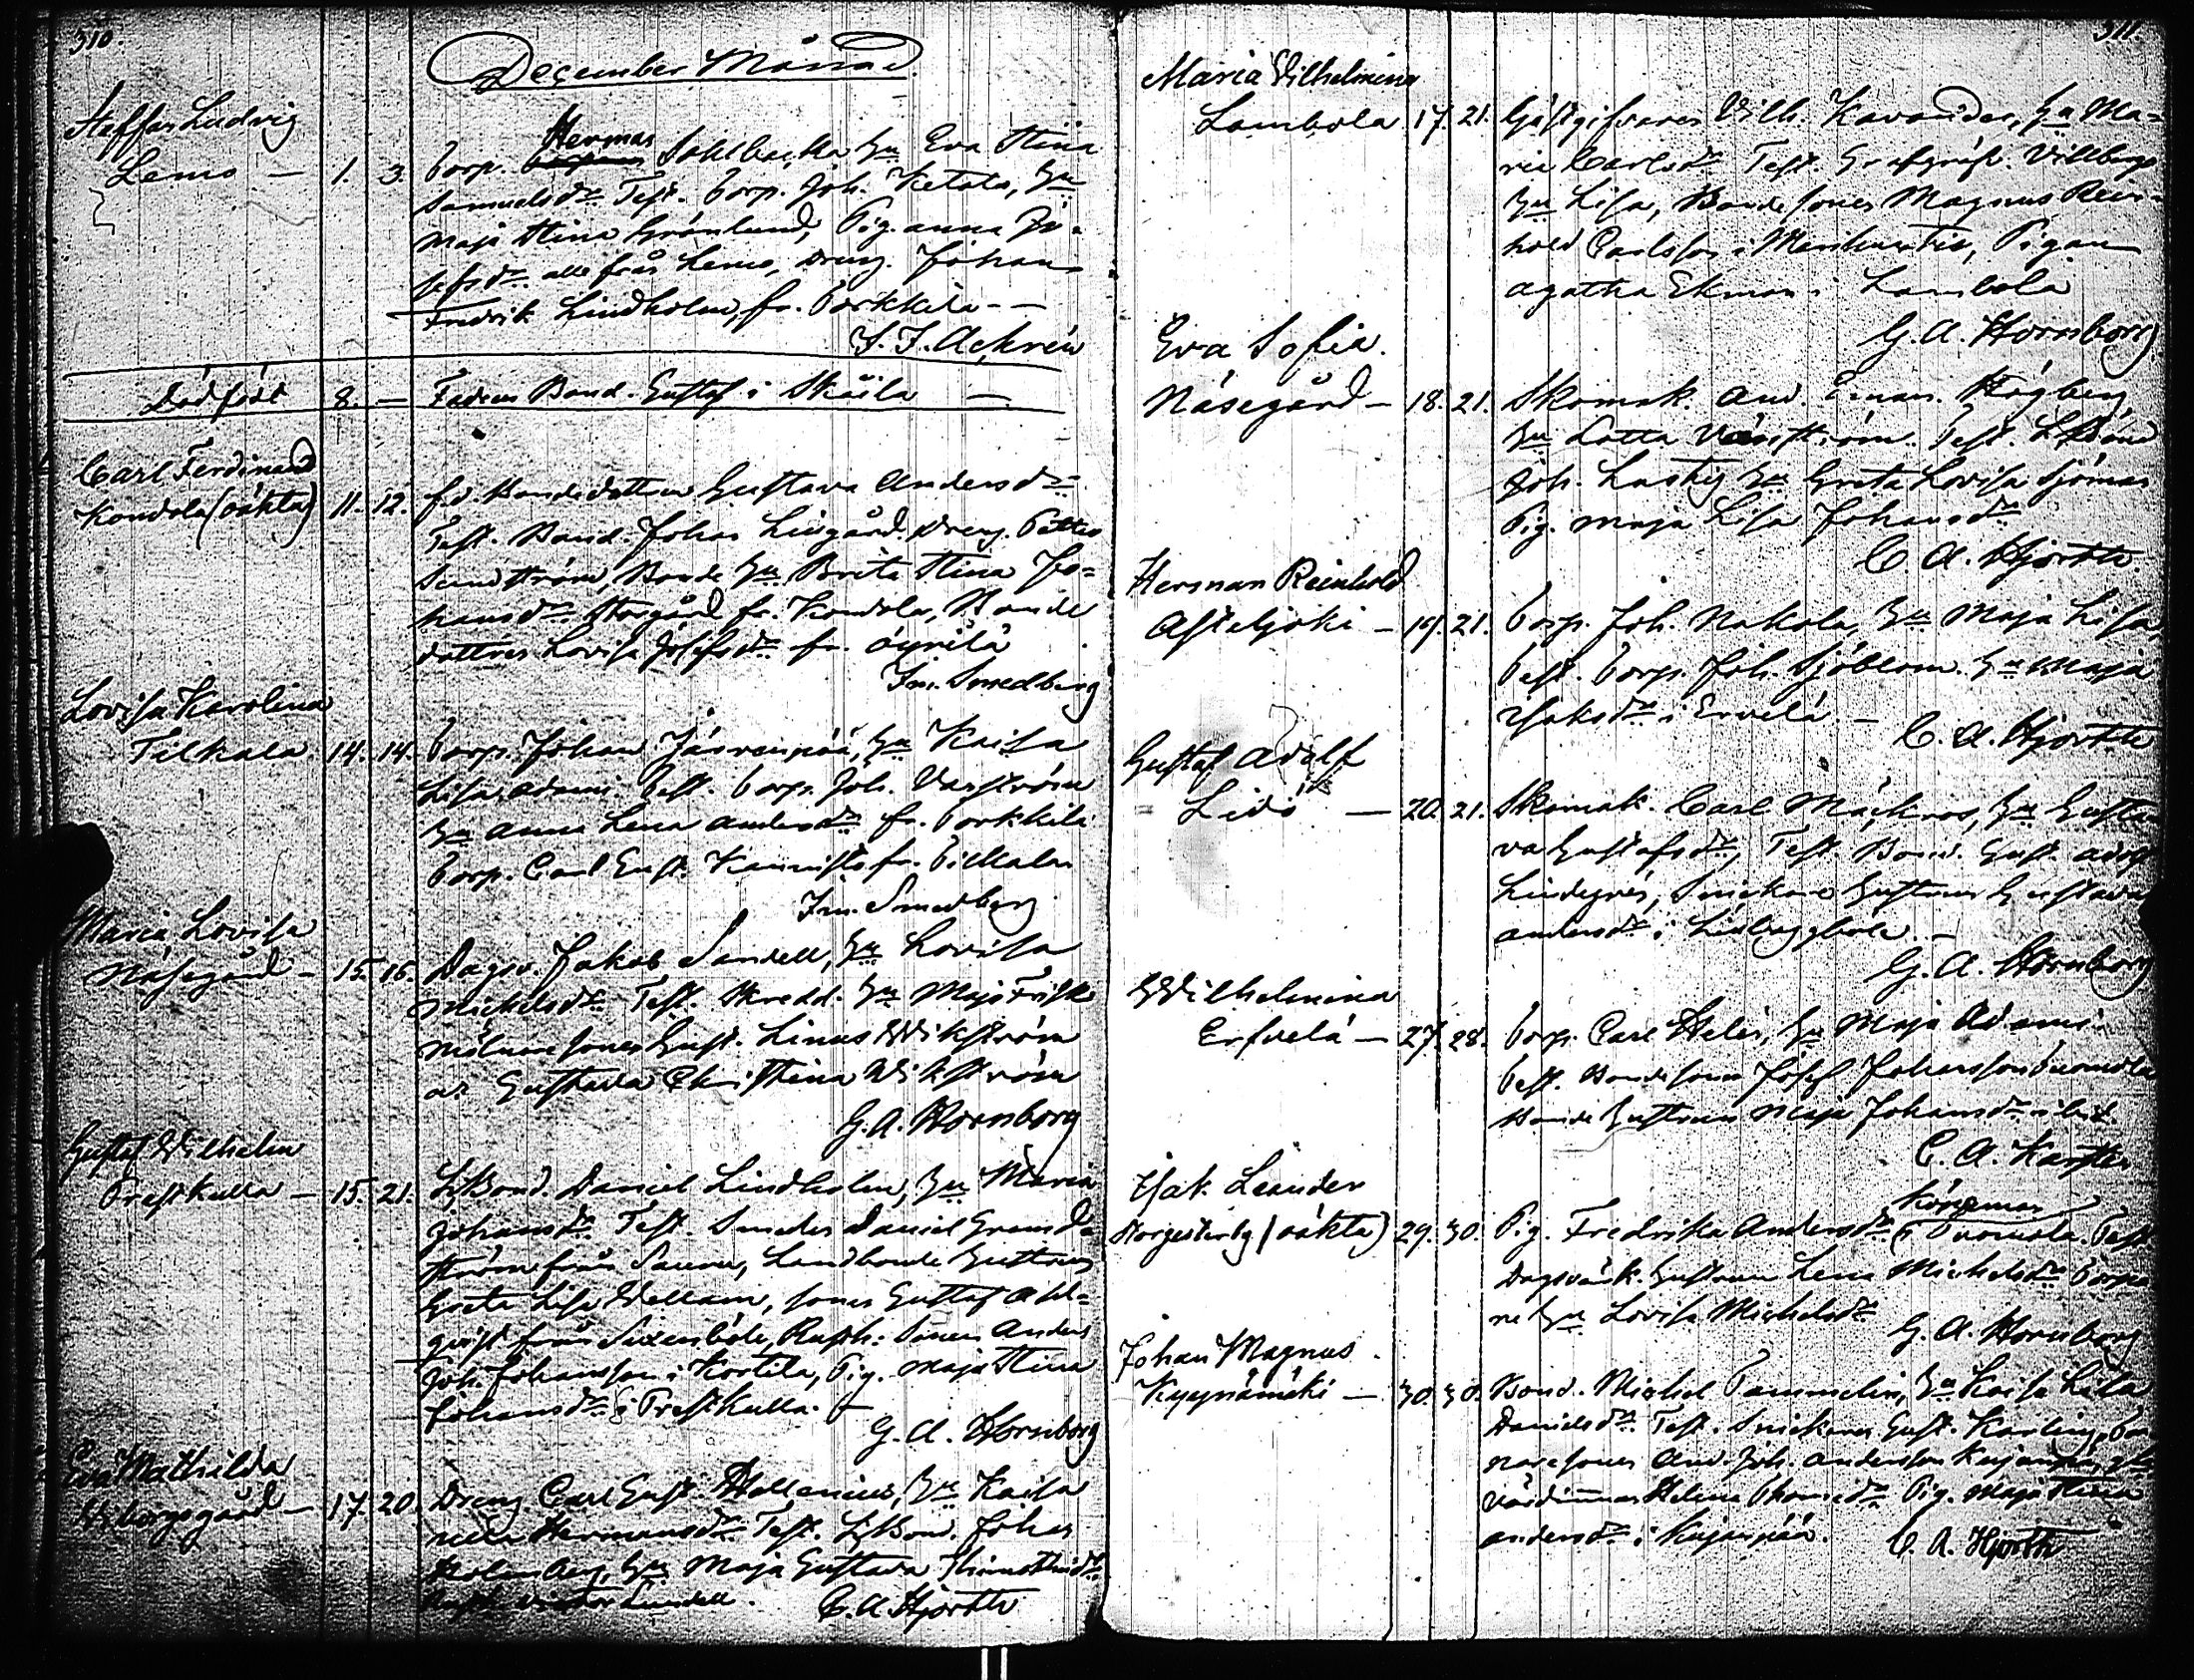 310.
December Månad.
Staffan Ludvig
Lemo — 1. 3. Torp. Herman Sahlbacka Hu Eva Stina
Samuelsdr Test. Torp. Joh. Ketala, Hu
Maja Stina Grönlund, Pig. Anna Jo=
sefsdr. alle från Lemo, Dreng. Johan
Fredrik Lindholm, fr. Torkkila —
J. F. Achrén
Dödfödt 8. — Fadren Bond. Gustaf i Skåila —
Carl Ferdinand
Kondola (oäkta) 11. 12. fd. Bondedottren Gustava Andersdr
Test. Bond. Johan Lillgård. Dreng. Petter
Sundström, Bonde Hu Brita Stina Jo=
hansdr. Storgård fr. Kondola, Bonde
dottren Lovisa Josefsdr fr. Öyrilä
Im. Smedberg
Lovisa Karolina
Tilkala 14. 14. Torp. Johan Järvenpää, Hu Kaisa
Lisa Adami Test. Torp. Joh. Varström
Hu Anna Lena Andersdr fr. Torkkila
Torp. Carl Gust. Kannisto fr. Tilkala
Im. Smedberg
Maria Lovisa
Näsegård — 15. 16. Dagsv. Jakob Sandell, Hu Lovisa
Michelsdr. Test. Skredd. Hu Maja Frisk
Mölnaresonen Gust. Linus Wikström
o. Gustava Christina Wikström
G. A. Hornborg
Gustaf Wilhelm
Prestkulla — 15. 21. LBond. Daniel Lindholm, Hu Maria
Johansdr. Test. Smeden Daniel Grund
ström från Sauru, Landbonde Hustrun
Greta Lisa Wellam, sonen Gustaf Ahl=
qvist från Sixenböle, Rusth: Sonen Anders
Joh. Johansson i Kortila, Pig. Maja Stina
Johansdr. i Prestkulla.
G. A. Hornborg
Eva Mathilda
17. 20. Dreng Carl Gust. Hellenius, Hu Kaisa
Hermansdr. Test. LBond. Johan
Holmberg, Hu Maja Gustava
Lindell. C. A. Hjorth
311.
Maria Vilhelmina
Lambola 17. 21. Gästgifvaren Vilh. Kavander, Hu Ma=
ria Carlsdr. Test. Villberg
Hu Lisa, Bondesonen Magnus Rein=
hold Carlsson i Pigan
Agatha Ekman i Lambola
G. A. Hornborg
Eva Sofia.
Näsegård — 18. 21. Skomak. And. Eman. Högberg
Hu Lotta Test. LBond
Joh. Lustig Hu Greta Lovisa Sjöman
Pig. Maja Lisa Johansdr
C. A. Hjorth
Herman Reinhold
Asteljoki — 19. 21. Torp. Joh. Nakola, Hu Maja Lisa,
Test. Torp. Joh. Sjöblom. Hu Maja
Isaksdr i Ervelä. —
C. A. Hjorth
Gustaf Adolf
Lidö — 20. 21. Skomak. Carl Mäckros, Hu Gusta
va Gustafsdr, Test. Bond. Gust. Adolf
Lindegrén, Snickare Hustrun Gustava
Andersdr i
G. A. Hornborg
Wilhelmina
Erfvelä — 27. 28. Torp. Carl Helin, Hu Maja Adami
Test. Bondesonen Josef Johansson
Bonde Hustrun Maja Johansdr
C. A. Karsten
Isak Leander Körpman
Norgesterby (oäkta) 29. 30. Pig. Fredrika Andersdr Test
Dagsvärk. Hustrun Lena Michelsdr Torpa
re Hu Lovisa Michelsdr
G. A. Hornborg
Johan Magnus
Kyynämäki — 30. 30. Bond. Michel Tammelin, Hu Kaisa Lisa
Danielsdr. Test. Snickaren Gust. Karling,
naresonen And. Joh. Andersson
Helena Pig. Maja Stina
Andersdr i Kujanpää. C. A. Hjorth